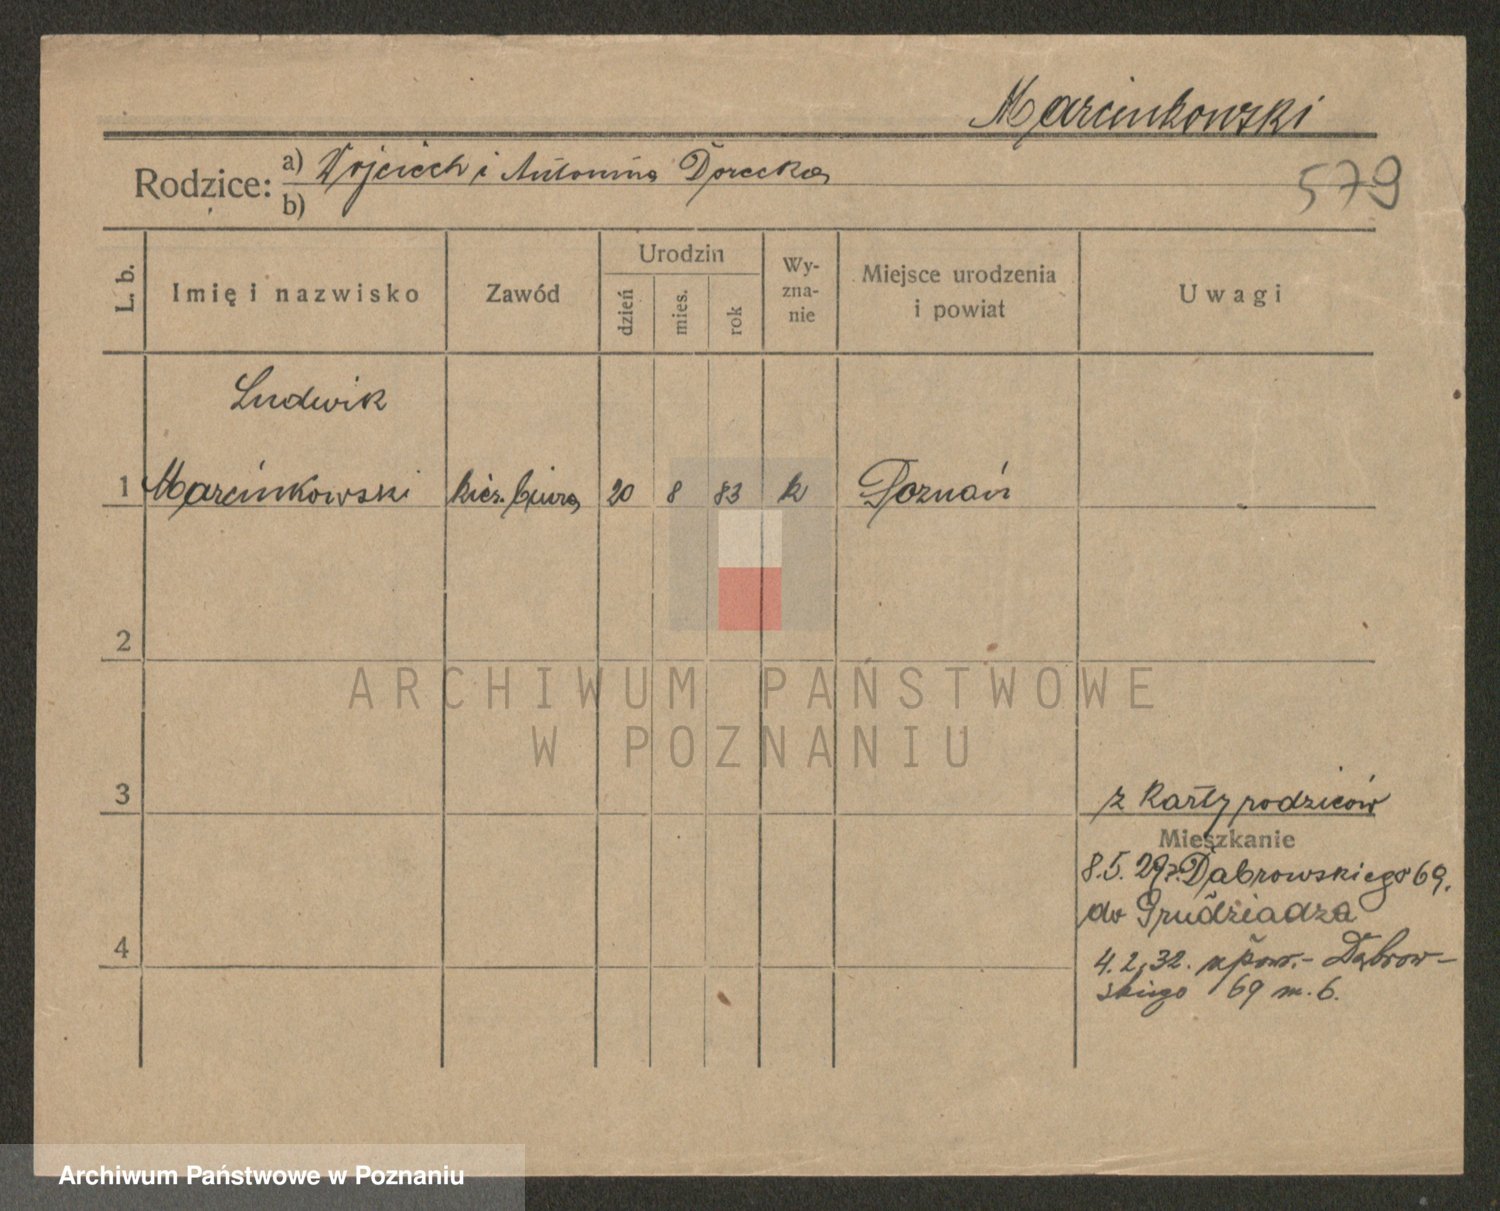 Marcinkowski
Rodzice: a) Wojciech i Antonina Dorecka
b)
579
L. b.
Imię i nazwisko
Zawód
Urodzin
dzień
mies.
rok
Wy-
zna-
nie
Miejsce urodzenia
i powiat
Uwagi
Ludwik
1 Marcinkowski kier. biura 20 8 83 k Poznań
2
ARCHIWUM PAŃSTWOWE
W POZNANIU
3
z karty rodziców
Mieszkanie
8.5. 29 z. Dąbrowskiego 69.
do Grudziadza
4
4.2.32. Dąbrow-
skiego 69 m. 6.
Archiwum Państwowe w Poznaniu